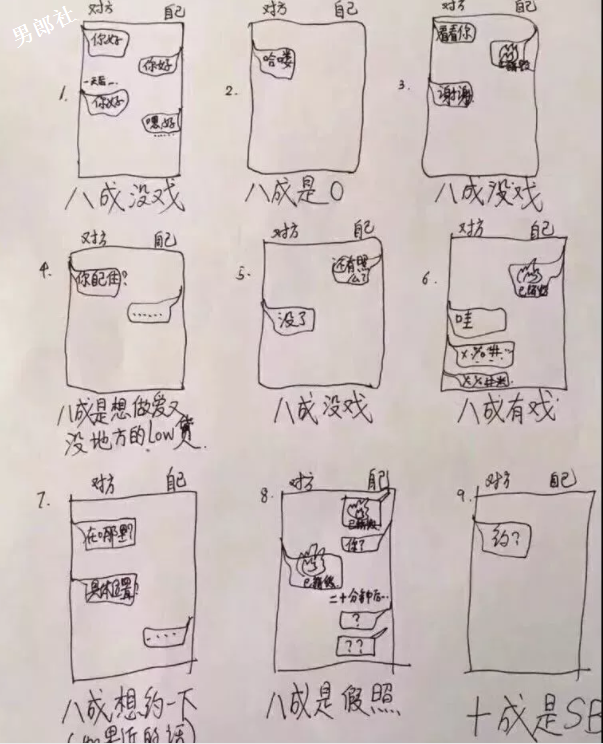 男郎社
对方 自己
1.
你好
你好
一天后...
你好
嗯好
......
八成没戏
对方 自己
2.
哈喽
八成是0
对方 自己
3.
看看你
已销毁
谢谢
八成没戏
对方 自己
4.
你自己住?
......
八成是想做爱又
没地方的low货
对方 自己
5.
还有照
么?
没了
八成没戏
对方 自己
6.
已销毁
哇
八成有戏
对方 自己
7.
在哪里?
具体位置?
....
八成想约一下
(如果近的话)
对方 自己
8.
已销毁
你?
已销毁
二十分钟后...
?
??
八成是假照
对方 自己
9.
约?
十成是SB